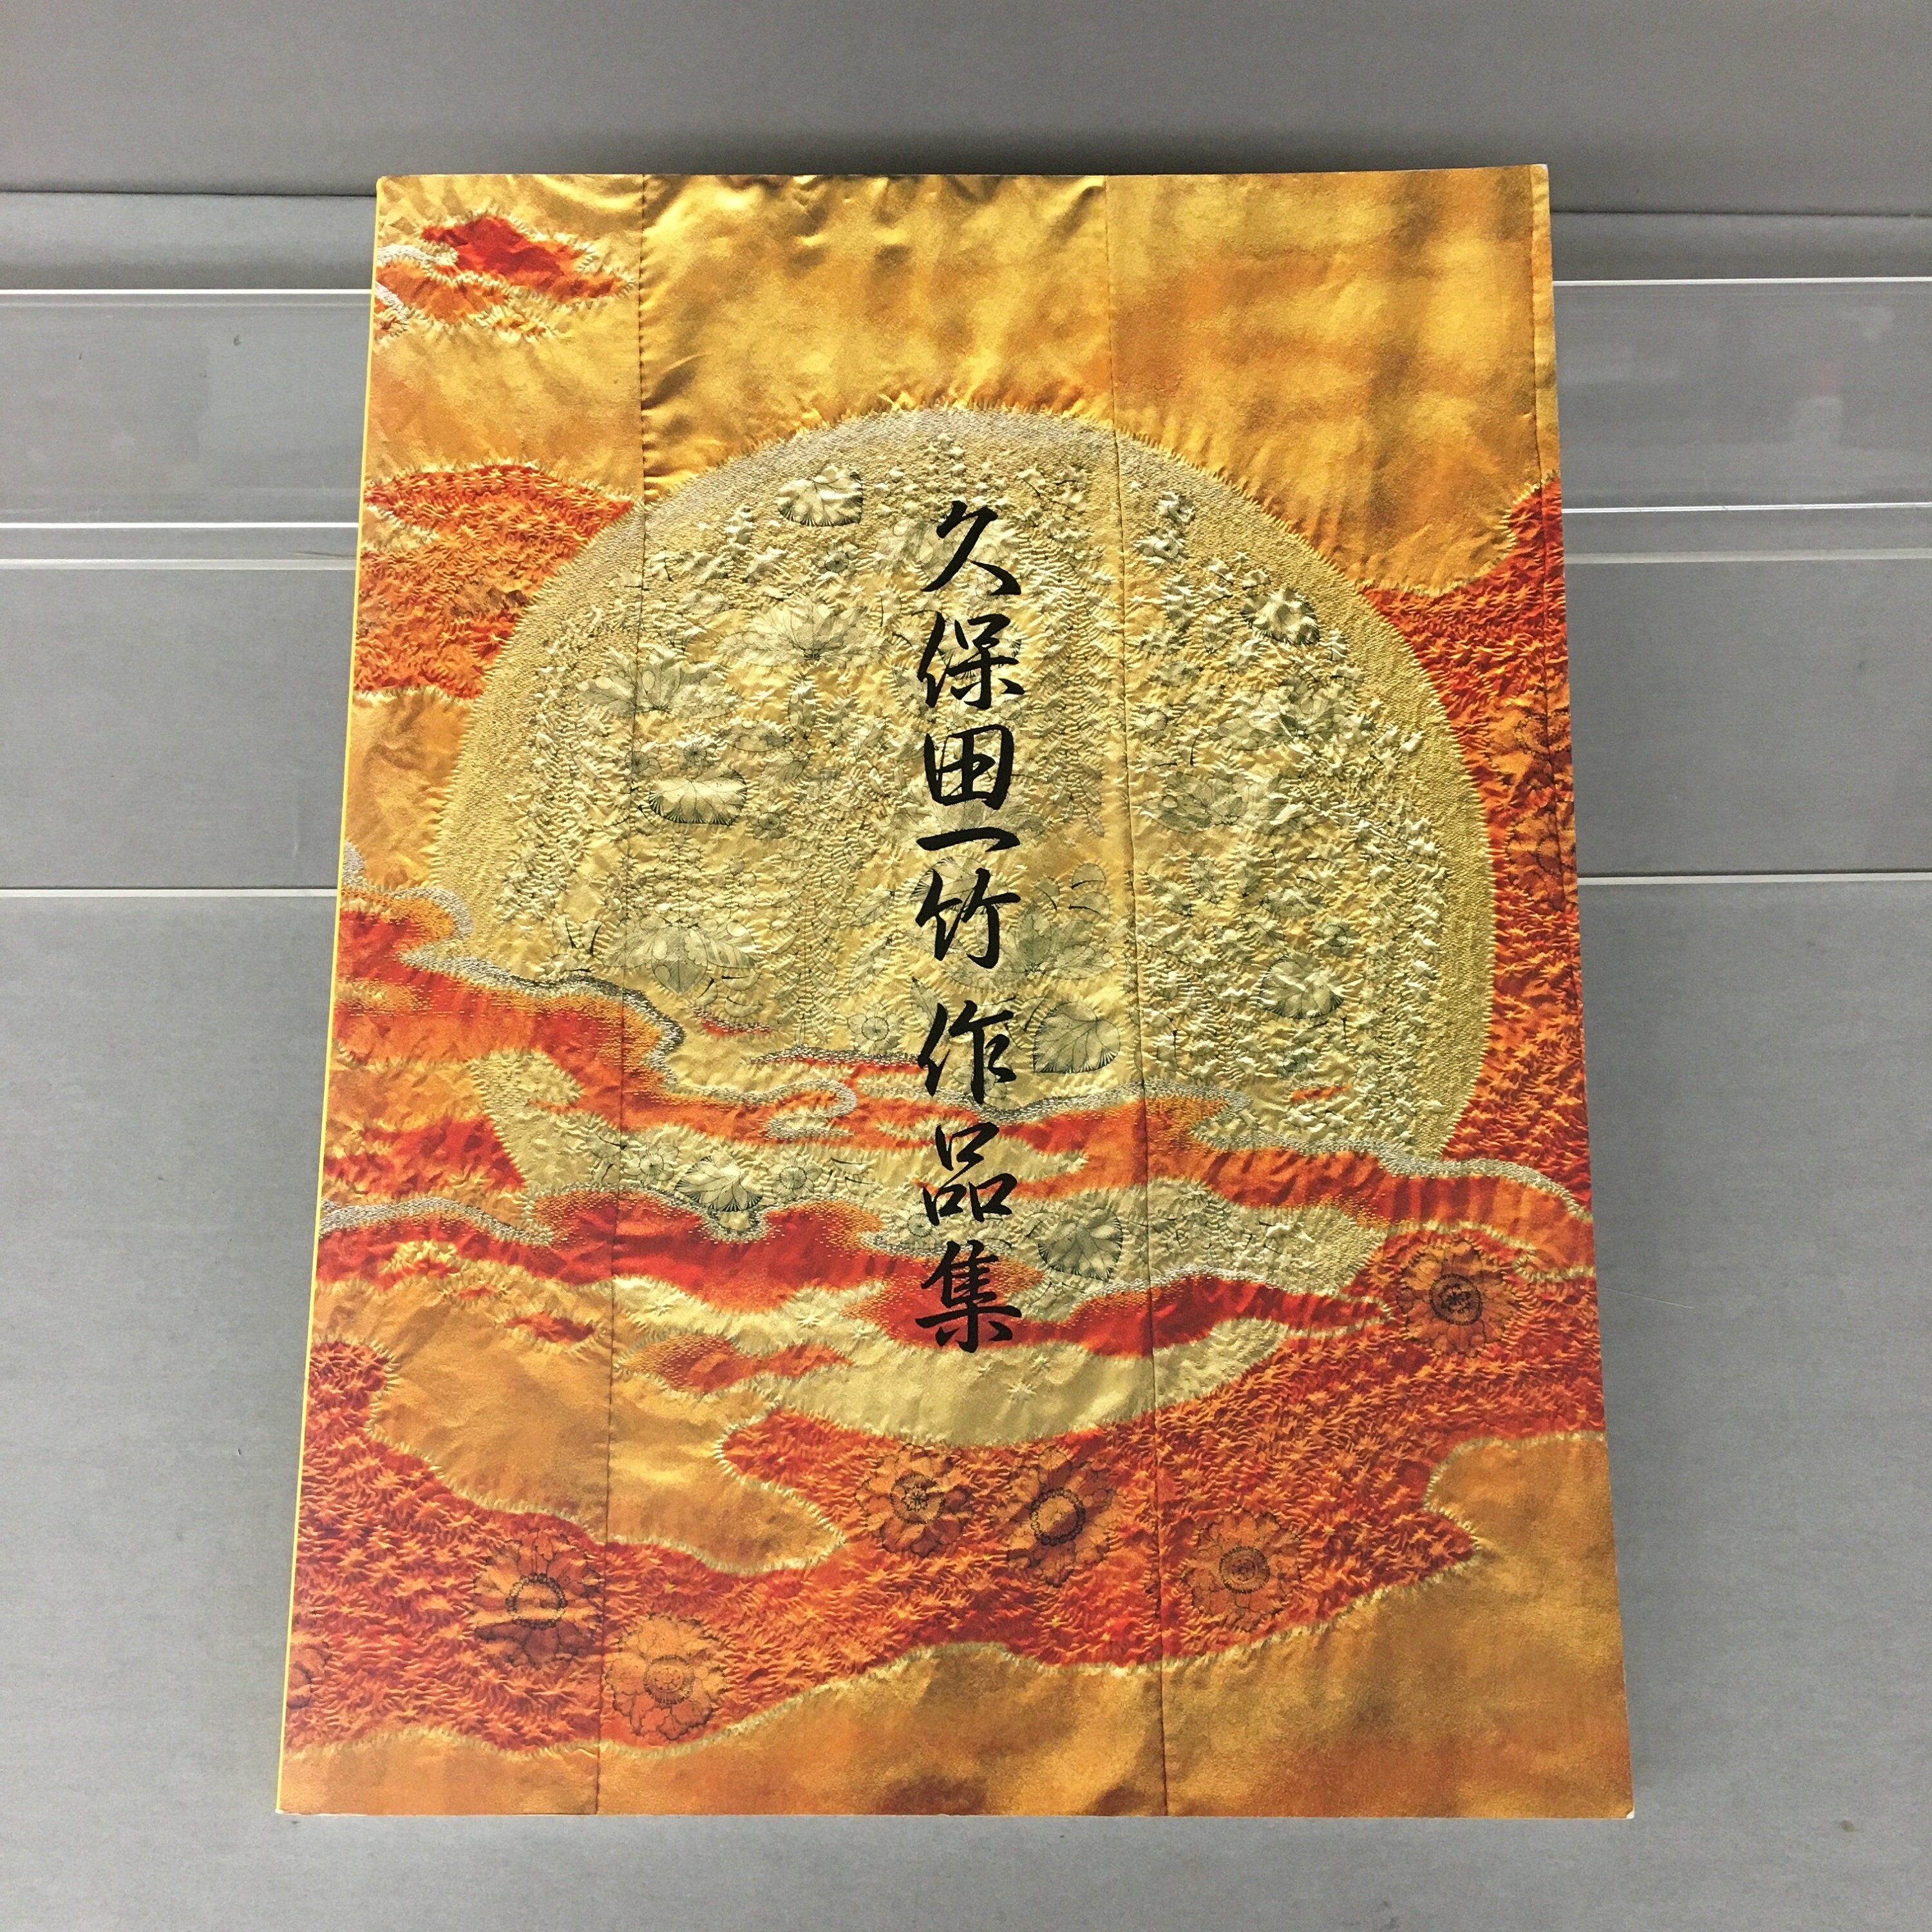 久保田一竹 作品集